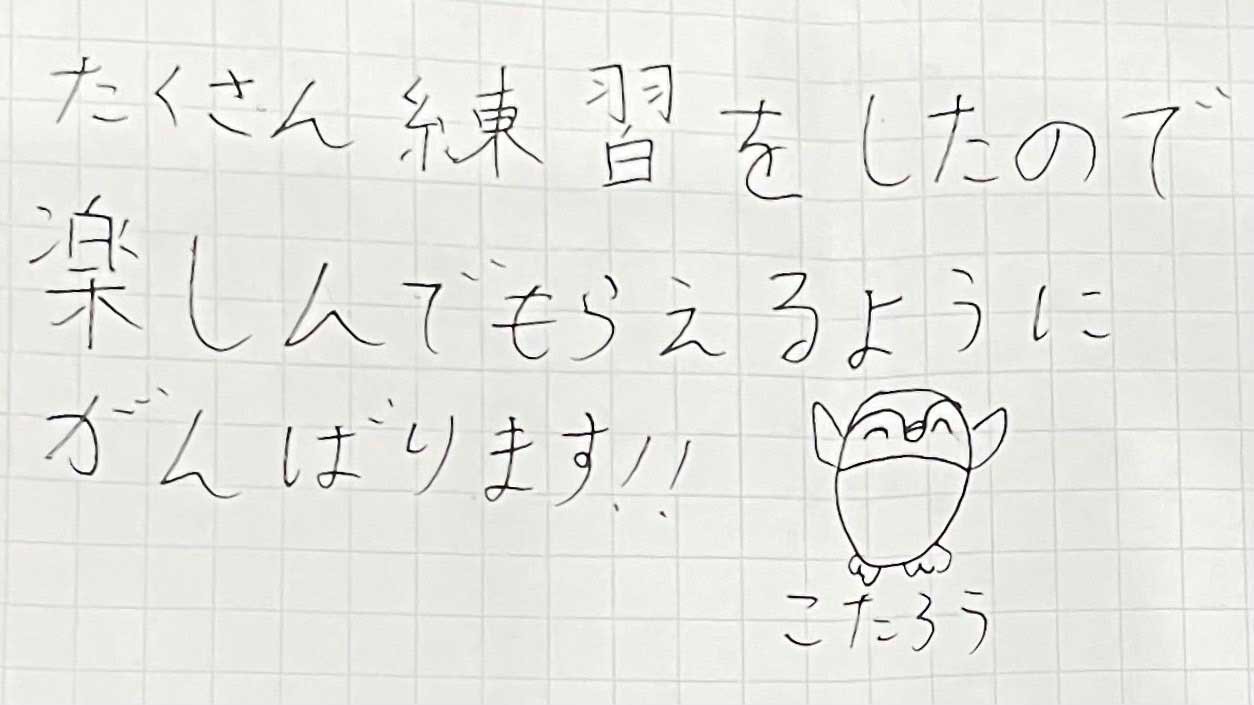 たくさん練習をしたので
楽しんでもらえるように
がんばります!!
こたろう